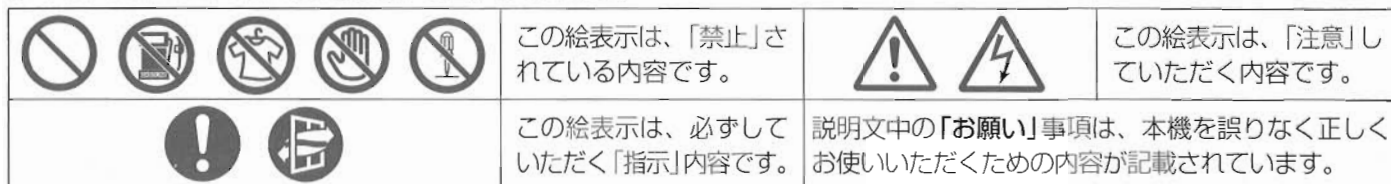 この絵表示は、「禁止」さ
れている内容です。
この絵表示は、「注意」し
ていただく内容です。
この絵表示は、必ずして
いただく「指示」内容です。
説明文中の「お願い」事項は、本機を誤りなく正しく
お使いいただくための内容が記載されています。